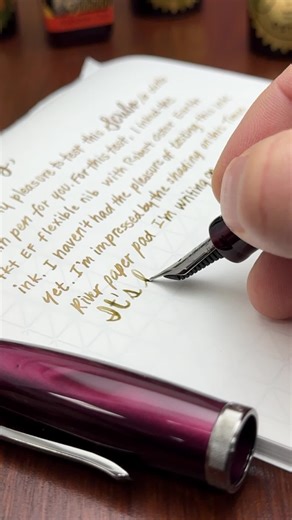 g,
pleasure to test this Soule
pen for you. For this test, I inked the
EF flexible nib with Robert Oster
ink. I haven't had the pleasure of testing this ink
yet. I'm impressed by the shading on the
River paper pad I'm writing
It's